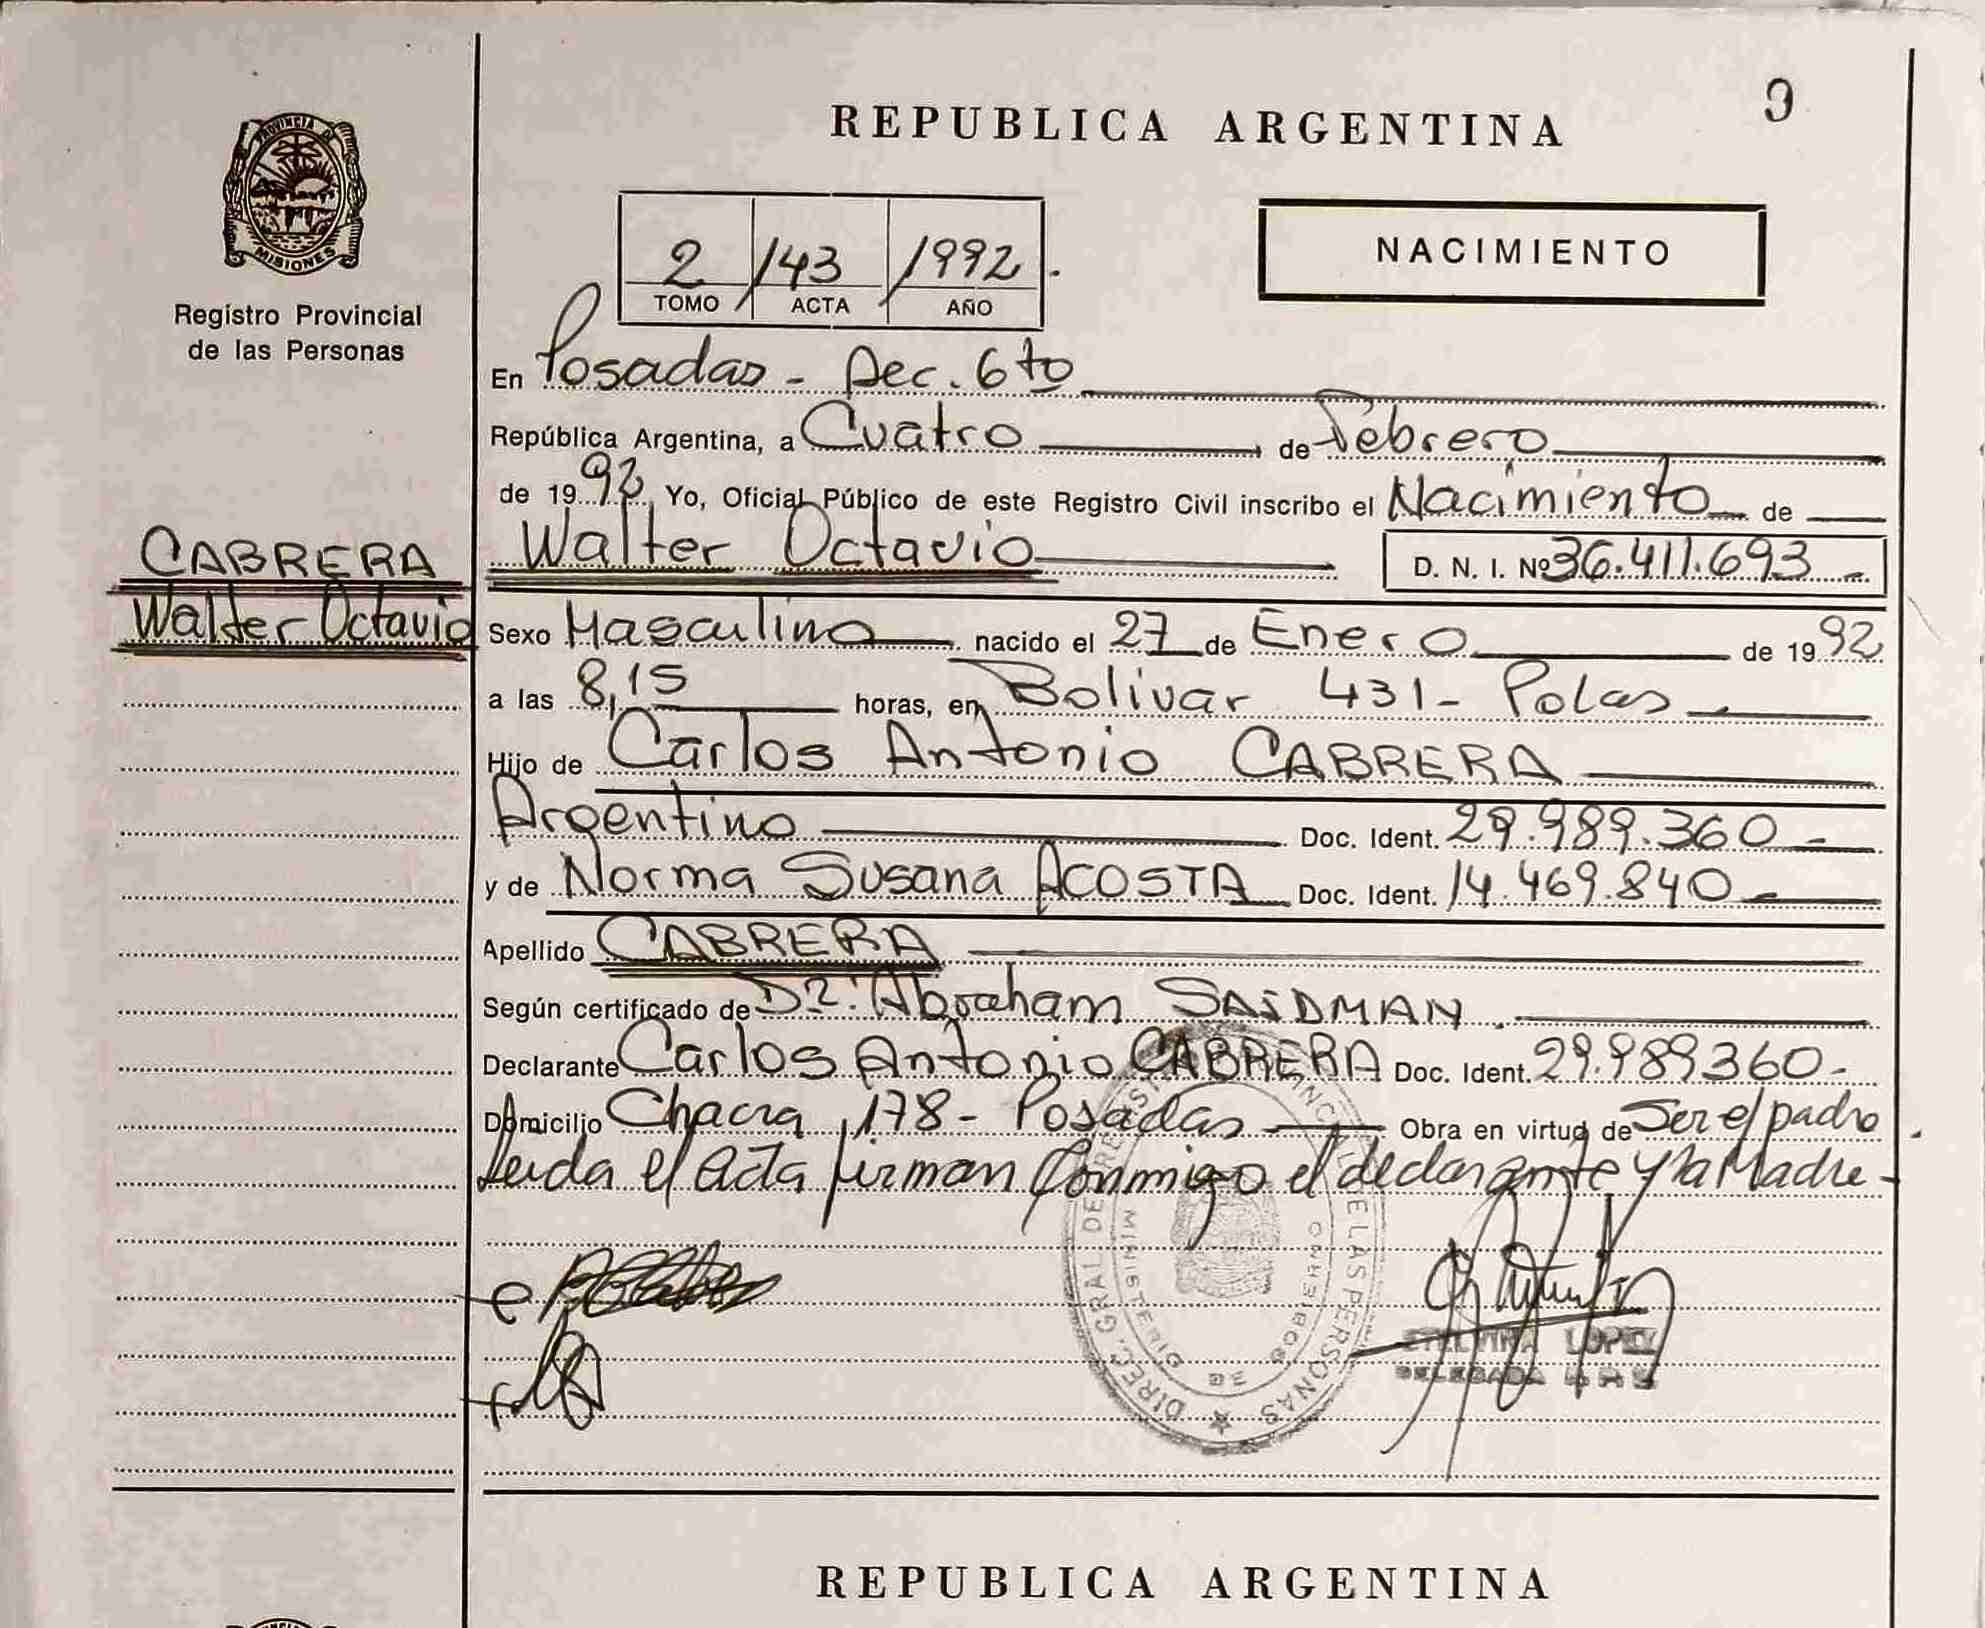 9
REPUBLICA ARGENTINA
PROVINCIA DE
MISIONES
Registro Provincial
de las Personas
NACIMIENTO
2 /43 /1992.
TOMO ACTA AÑO
En Posadas - Sec. 6to
República Argentina, a Cuatro de Febrero
de 1992 Yo, Oficial Público de este Registro Civil inscribo el Nacimiento de
CABRERA
Walter Octavio
Walter Octavio D. N. I. Nº 36.411.693
Sexo Masculino nacido el 27 de Enero de 1992
a las 8,15 horas, en Bolivar 431- Pdas
Hijo de Carlos Antonio CABRERA
Argentino Doc. Ident. 29.989.360-
y de Norma Susana ACOSTA Doc. Ident. 14.469.840-
Apellido CABRERA
Según certificado de Dr. Abraham SAIDMAN.
Declarante Carlos Antonio CABRERA Doc. Ident. 29.989360-
Domicilio Chacra 178- Posadas Obra en virtud de Ser el padre
Leida el acta firman Conmigo el declarante y la Madre-
DIREC. GRAL DE REGISTRO PROVINCIAL DE LAS PERSONAS
MINISTERIO DE GOBIERNO
LOPEZ
DELEGADA
REPUBLICA ARGENTINA